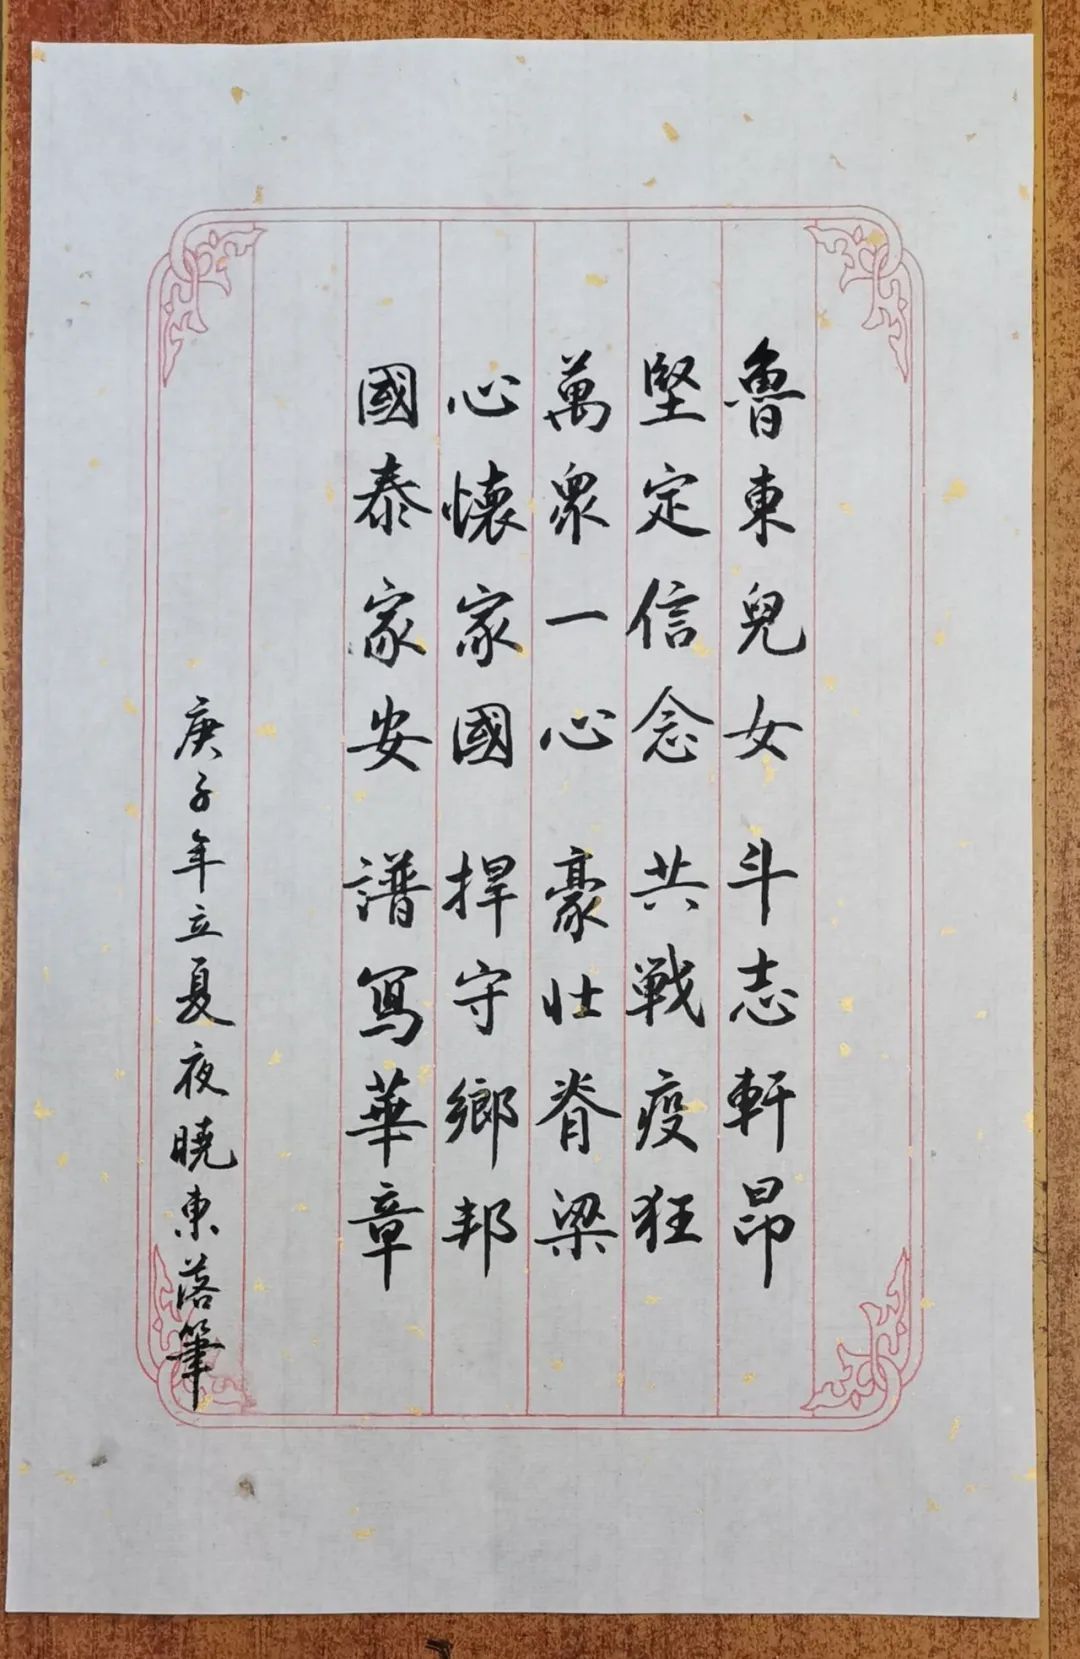 魯東兒女 斗志軒昂
堅定信念 共戰疫狂
萬眾一心 豪壯脊梁
心懷家國 捍守鄉邦
國泰家安 譜寫華章
庚子年立夏夜曉東落筆